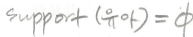 support (육아) = ϕ